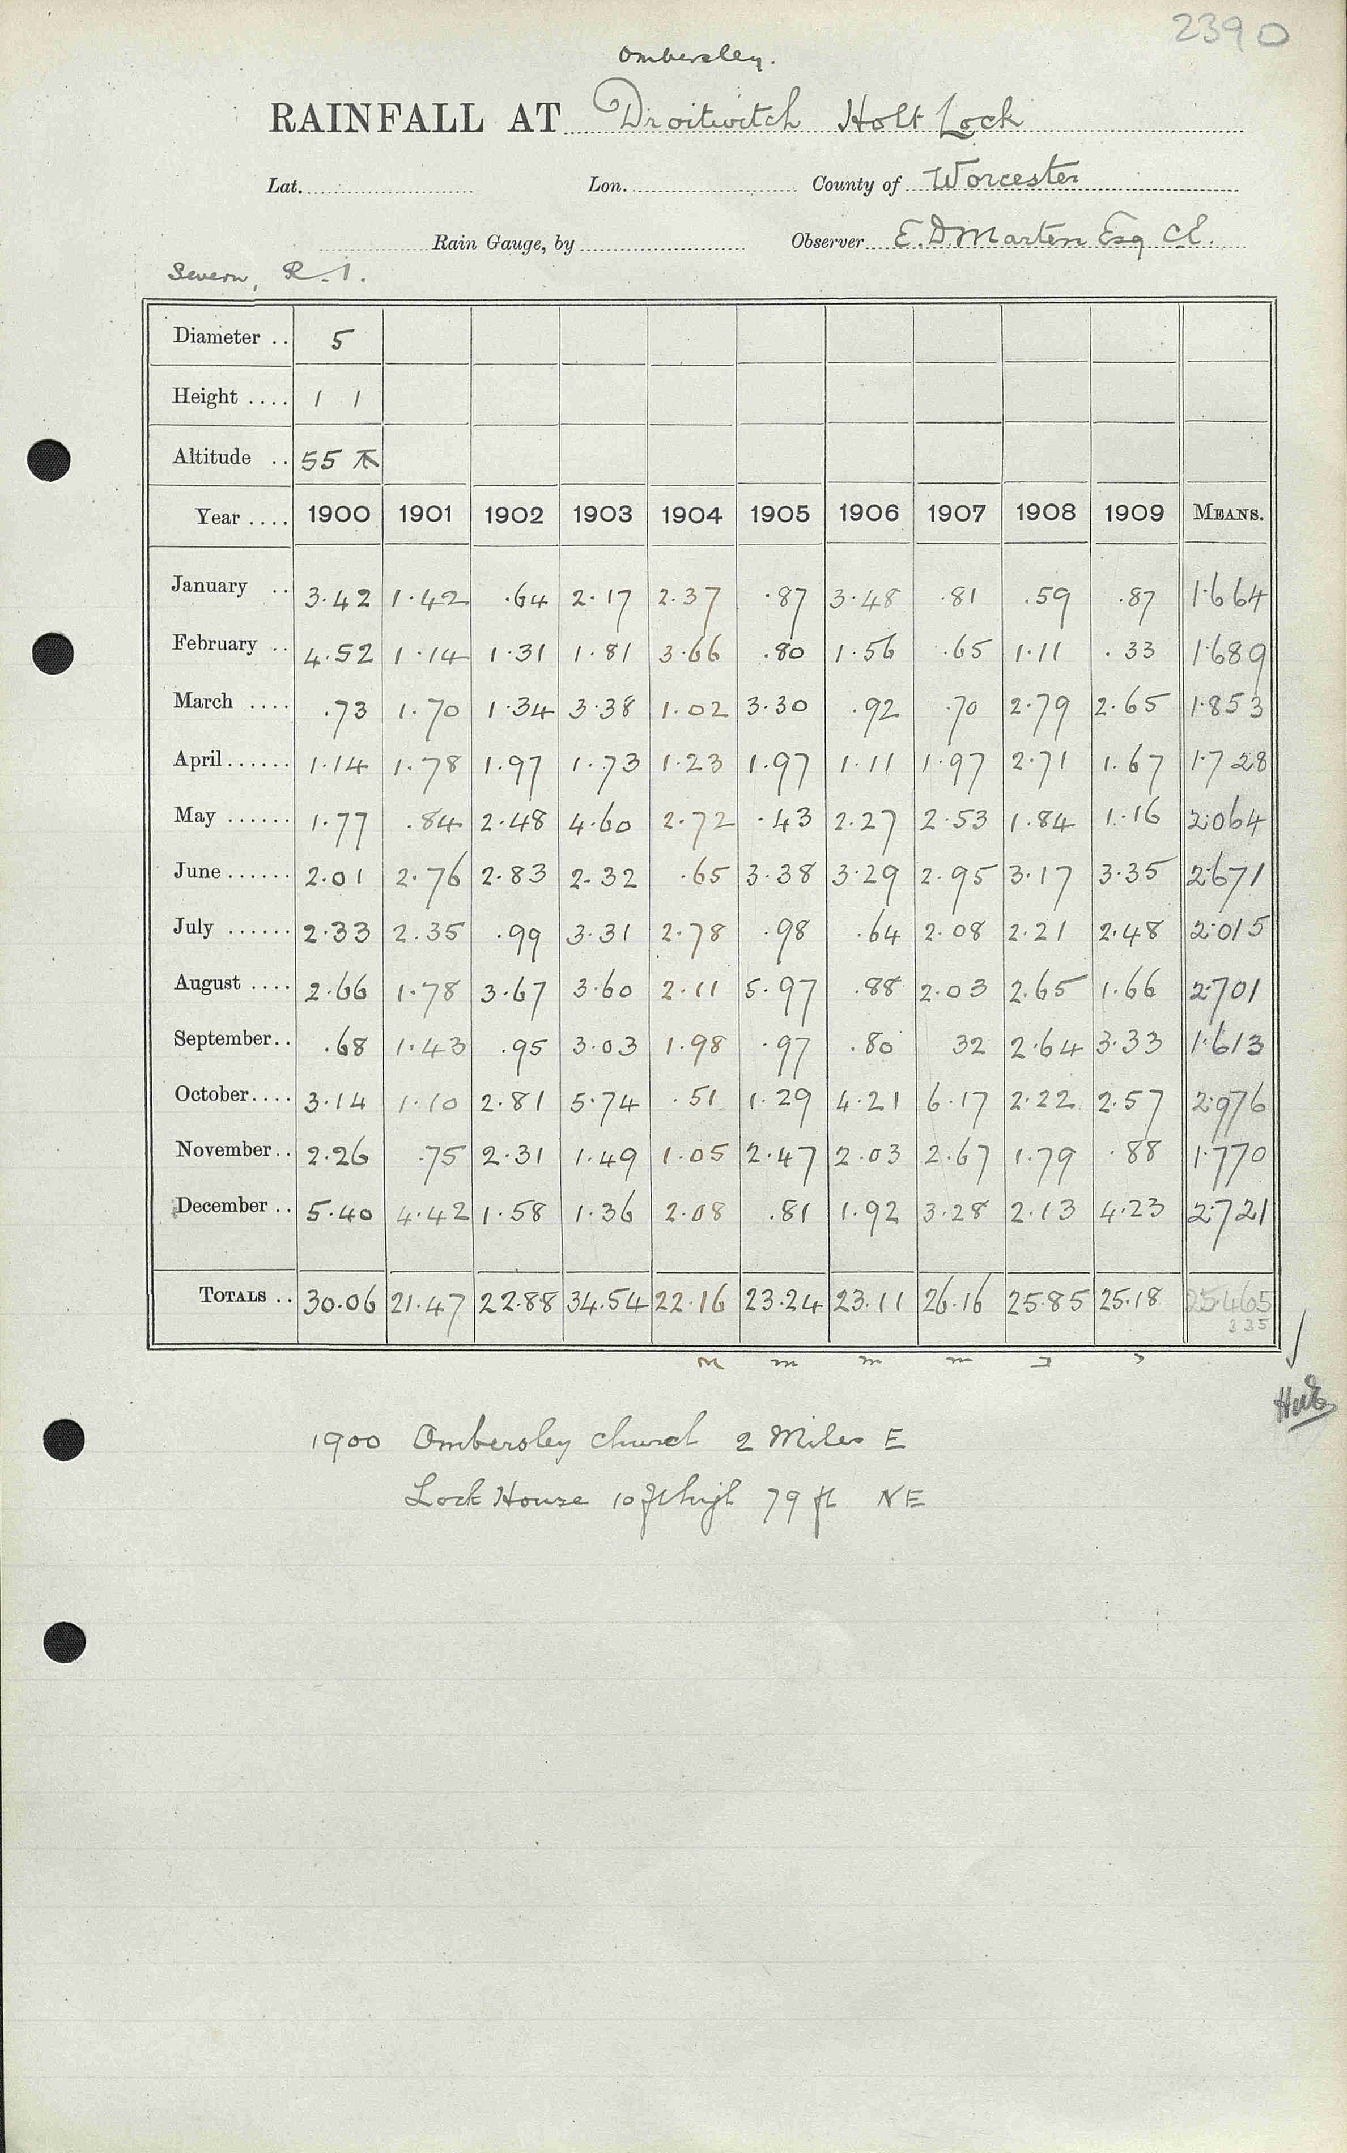 2390
Ombersley.
RAINFALL AT Droitwitch Holt Lock
Lat. Lon. County of Worcester
Rain Gauge, by Observer E. D Marten Esq CE.
Severn, R. 1.
Diameter .. 5
Height .... 1 1
Altitude .. 55
Year .... 1900 1901 1902 1903 1904 1905 1906 1907 1908 1909 MEANS.
January .. 3.42 1.42 .64 2.17 2.37 .87 3.48 .81 .59 .87 1.664
February .. 4.52 1.14 1.31 1.81 3.66 .80 1.56 .65 1.11 .33 1.689
March .... .73 1.70 1.34 3.38 1.02 3.30 .92 .70 2.79 2.65 1.853
April...... 1.14 1.78 1.97 1.73 1.23 1.97 1.11 1.97 2.71 1.67 1.728
May ...... 1.77 .84 2.48 4.60 2.72 .43 2.27 2.53 1.84 1.16 2.064
June...... 2.01 2.76 2.83 2.32 .65 3.38 3.29 2.95 3.17 3.35 2.671
July ...... 2.33 2.35 .99 3.31 2.78 .98 .64 2.08 2.21 2.48 2.015
August .... 2.66 1.78 3.67 3.60 2.11 5.97 .88 2.03 2.65 1.66 2.701
September.. .68 1.43 .95 3.03 1.98 .97 .80 32 2.64 3.33 1.613
October.... 3.14 1.10 2.81 5.74 .51 1.29 4.21 6.17 2.22 2.57 2.976
November.. 2.26 .75 2.31 1.49 1.05 2.47 2.03 2.67 1.79 .88 1.770
December .. 5.40 4.42 1.58 1.36 2.08 .81 1.92 3.28 2.13 4.23 2.721
TOTALS .. 30.06 21.47 22.88 34.54 22.16 23.24 23.11 26.16 25.85 25.18 25.465
335
m m m m
1900 Ombersley Church 2 Miles E
Lock House 10 ft high 79 ft NE